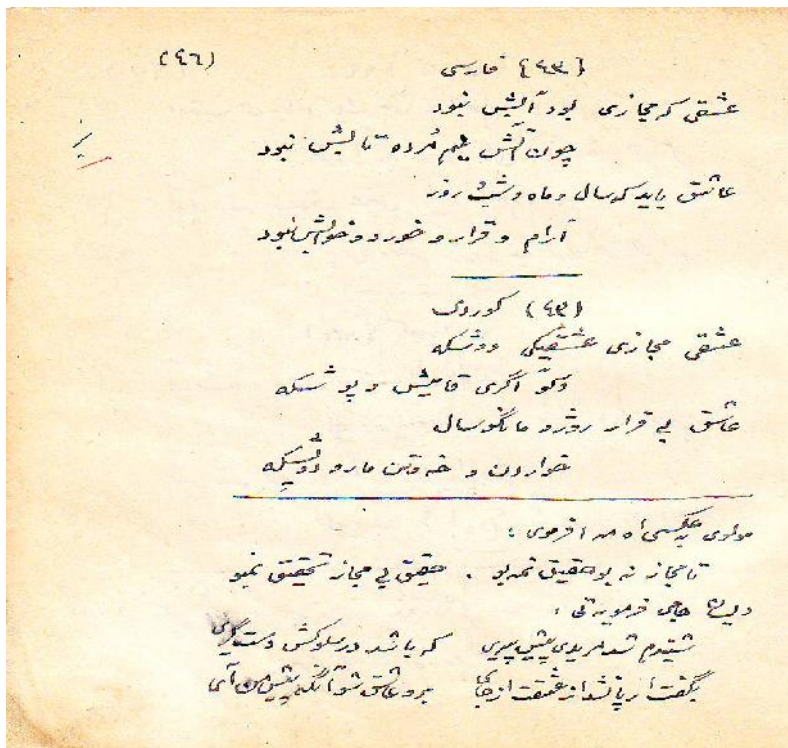 (٤٦)
(٤٣) فارسی
عشقی که مجازی بود آبش نبود
چون آتش نیم مرده تابش نبود
عاشق باید که سال و ماه و شب و روز
آرام و قرار و خورد و خوابش نبود
(٤٣) کوردی
عشقی مجازی عشقیکی ووشکه
وکو آگری قامیش و پوشکه
عاشق بی قرار روژو مانگو سال
خواردن و خه وتن مارو دوپشکه
مولوی به عکسی ئه مه
تا مجاز نه بو حقیق نمه بو . حقیق بی مجاز تحقیق نمبو
جامی
شنیدم شد مریدی پیش پیری که باشد در سلوکش دستگیری
بگفت ار پا نشد از عشقت از جای برو عاشق شو آنگه پیش من آی